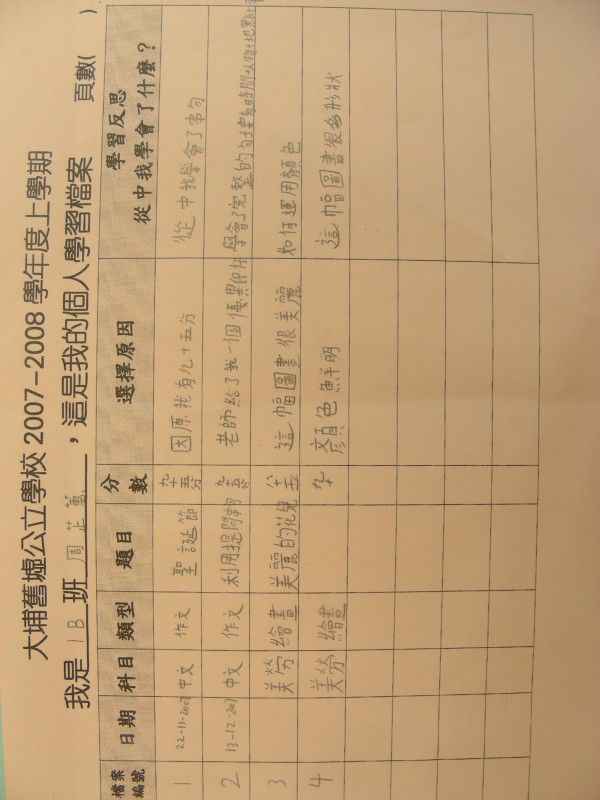 大埔舊墟公立學校 2007-2008 學年度上學期
我是 1B 班 周芷萬，這是我的個人學習檔案 頁數( )
檔案編號 日期 科目 類型 題目 分數 選擇原因 學習反思 從中我學會了什麼？
1 22-11-2007 中文 作文 聖誕節 九十五分 因原我有九十五分 從中我學會了串句
2 13-12-2007 中文 作文 利用提問 老師給了我一個優異印 學會了完整的句子要有時間人物地點
3 美勞 繪畫 美麗的花兒 這幅圖畫很美麗 如何運用顏色
4 美勞 繪畫 九十 顏色鮮明 這幅圖畫很多形狀